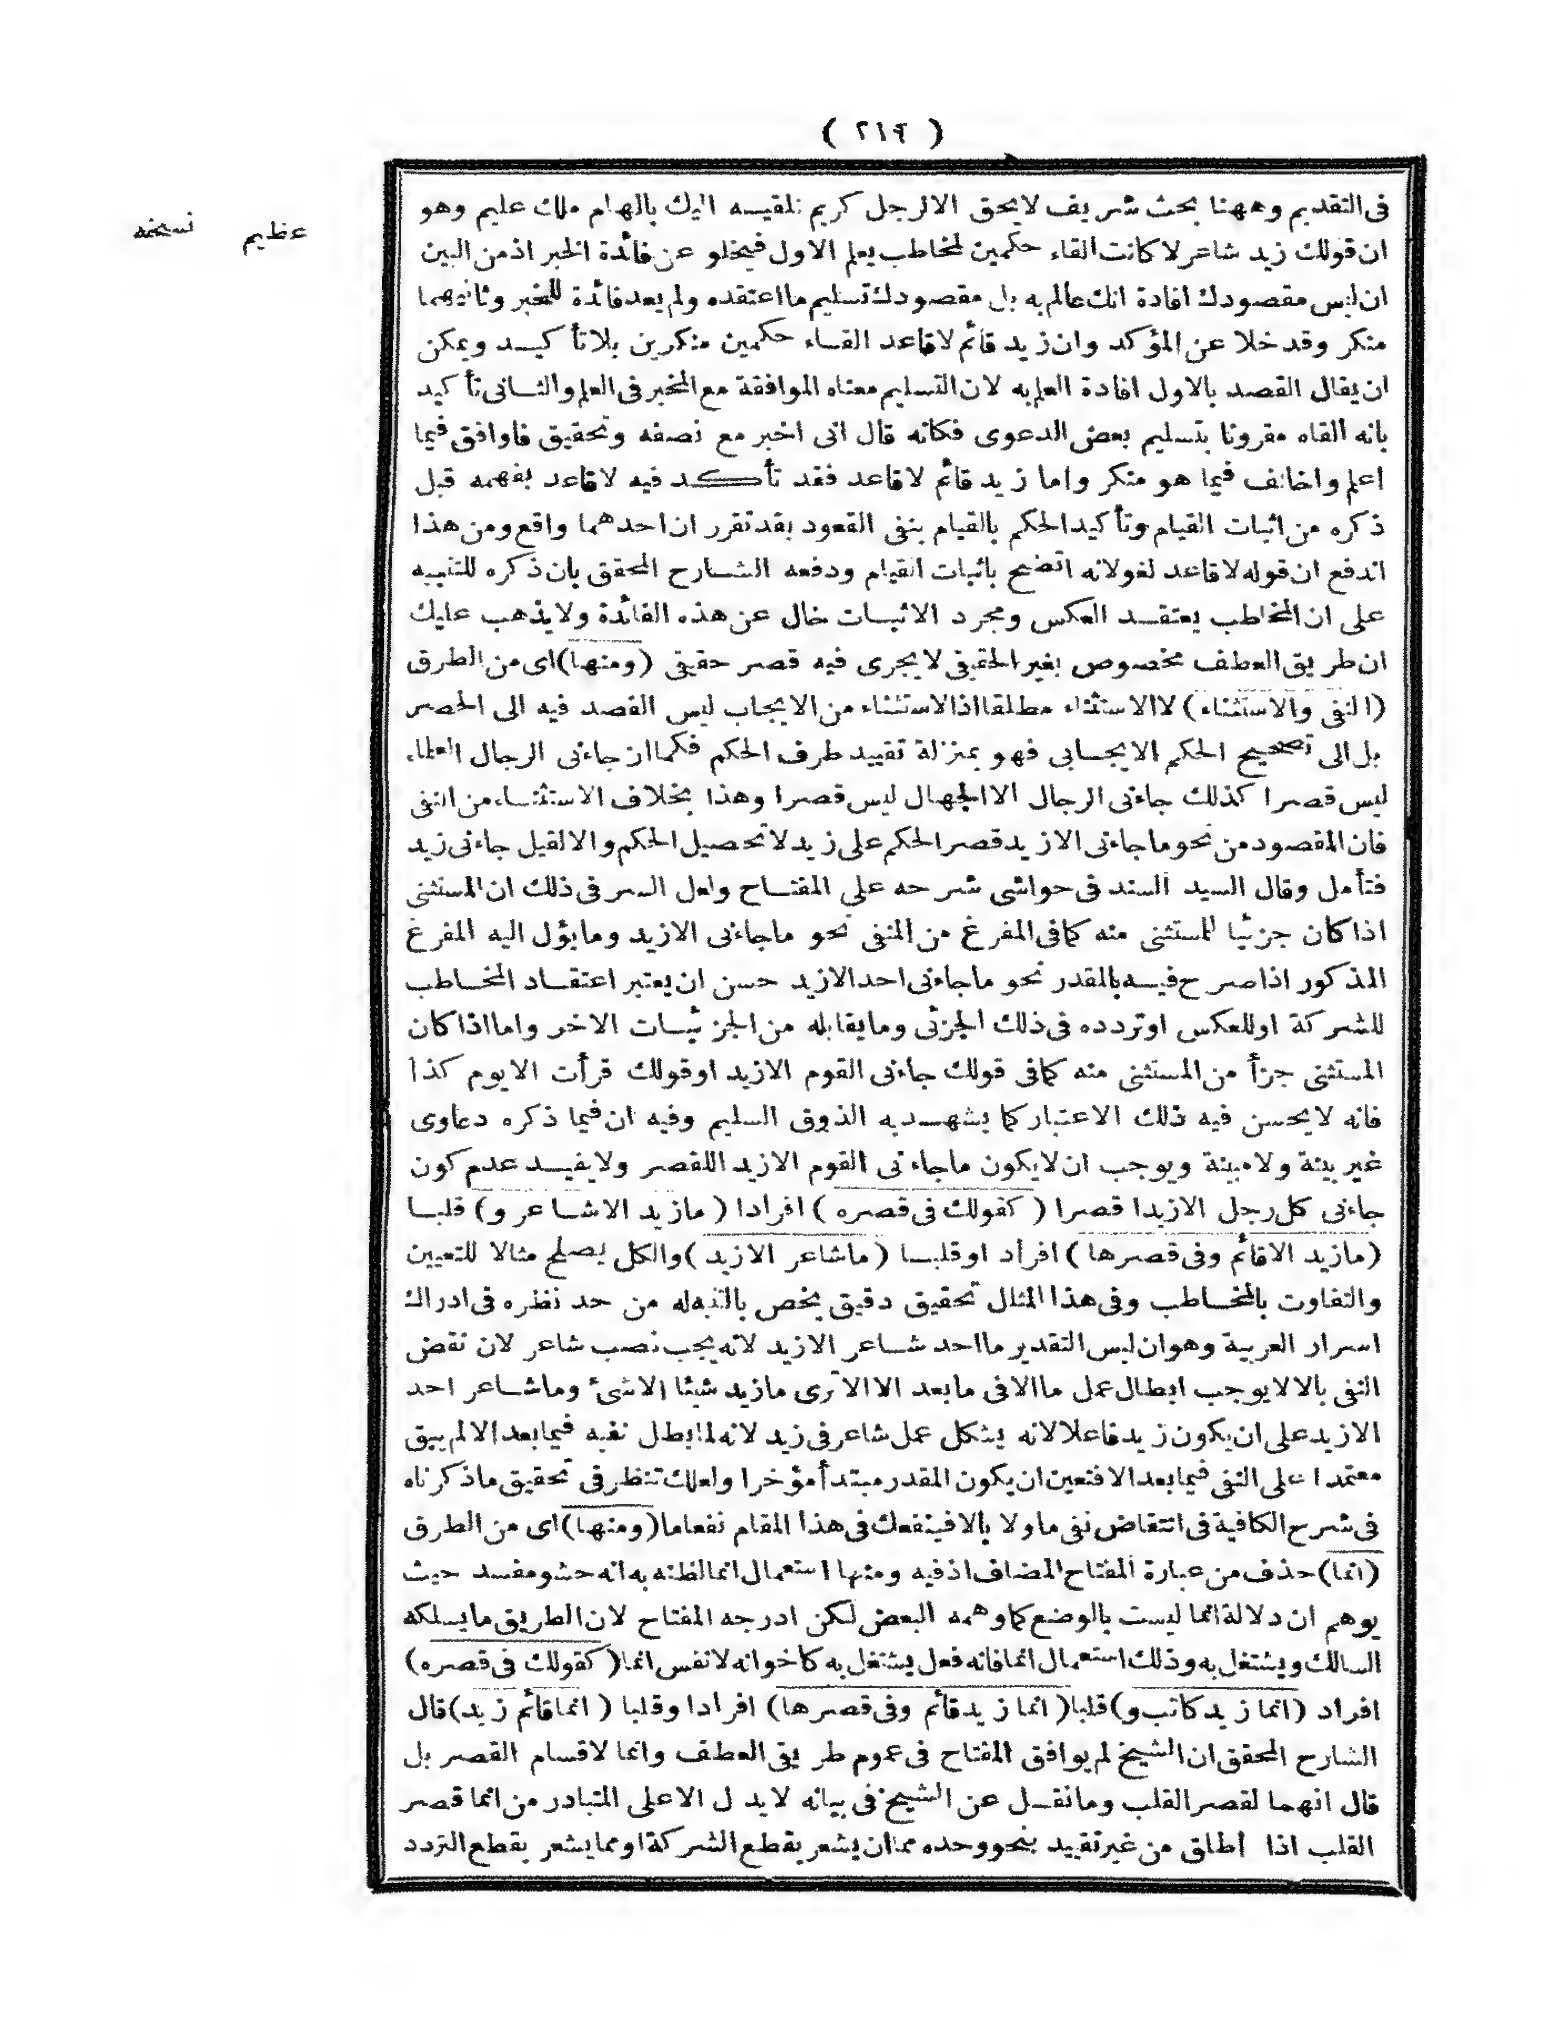 ( ٢١٩ )
فى التقديم وههنا بحث شريف لايحق الا لرجل كريم نلقيه اليك بالهام ملك عليم وهو
عظيم نسخه
ان قولك زيد شاعر لا كاتب القاء حكمين لمخاطب يعلم الاول فيخلو عن فائدة الخبر اذ من البين
ان ليس مقصودك افادة انك عالم به بل مقصودك تسليم ما اعتقده ولم يعد فائدة للخبر وثانيهما
منكر وقد خلا عن المؤكد وان زيد قائم لا قاعد القاء حكمين منكرين بلا تأكيد ويمكن
ان يقال القصد بالاول افادة العلم به لان التسليم معناه الموافقة مع المخبر فى العلم والثانى تأكيد
بانه القاه مقرونا بتسليم بعض الدعوى فكانه قال انى اخبر مع نصفه وتحقيق فاوافق فيما
اعلم واخالف فيما هو منكر واما زيد قائم لا قاعد فقد تأكد فيه لا قاعد بفهمه قبل
ذكره من اثبات القيام وتأكيد الحكم بالقيام بنفى القعود بقد تقرر ان احدهما واقع ومن هذا
اندفع ان قوله لا قاعد لغو لانه اتضح باثبات القيام ودفعه الشارح المحقق بان ذكره للتنبيه
على ان المخاطب يعتقد العكس ومجرد الاثبات خال عن هذه الفائدة ولا يذهب عليك
ان طريق العطف مخصوص بغير الحقيقى لا يجرى فيه قصر حقيقى (ومنها) اى من الطرق
(النفى والاستثناء) لا الاستثناء مطلقا اذ الاستثناء من الايجاب ليس القصد فيه الى الحصر
بل الى تصحيح الحكم الايجابى فهو بمنزلة تقييد طرف الحكم فكما ان جاءنى الرجال العلماء
ليس قصرا كذلك جاءنى الرجال الا الجهال ليس قصرا وهذا بخلاف الاستثناء من النفى
فان المقصود من نحو ما جاءنى الا زيد قصر الحكم على زيد لا تحصيل الحكم والا لقيل جاءنى زيد
فتأمل وقال السيد السند فى حواشى شرحه على المفتاح ولعل السر فى ذلك ان المستثنى
اذا كان جزئيا للمستثنى منه كما فى المفرغ من المنفى نحو ما جاءنى الا زيد وما يؤل اليه المفرغ
المذكور اذا صرح فيه بالمقدر نحو ما جاءنى احد الا زيد حسن ان يعتبر اعتقاد المخاطب
للشركة او للعكس او تردده فى ذلك الجزئى وما يقابله من الجزئيات الاخر واما اذا كان
المستثنى جزأ من المستثنى منه كما فى قولك جاءنى القوم الا زيد او قولك قرأت الا يوم كذا
فانه لا يحسن فيه ذلك الاعتبار كما يشهد به الذوق السليم وفيه ان فيما ذكره دعاوى
غير بينة ولا مبينة ويوجب ان لا يكون ما جاءنى القوم الا زيد اللقصر ولا يفيد عدم كون
جاءنى كل رجل الا زيدا قصرا (كقولك فى قصره) افرادا (ما زيد الا شاعر و) قلبا
(ما زيد الا قائم وفى قصرها) افراد او قلبا (ما شاعر الا زيد) والكل يصلح مثالا للتعيين
والتفاوت بالمخاطب وفى هذا المثال تحقيق دقيق يخص بالتنبه له من حد نظره فى ادراك
اسرار العربية وهو ان ليس التقدير ما احد شاعر الا زيد لانه يجب نصب شاعر لان نقض
النفى بالا لا يوجب ابطال عمل ما الا فى ما بعد الا الا ترى ما زيد شيئا الا شئ وما شاعر احد
الا زيد على ان يكون زيد فاعلا لانه يشكل عمل شاعر فى زيد لانه لما بطل نفيه فيما بعد الا لم يبق
معتمدا على النفى فيما بعد الا فتعين ان يكون المقدر مبتدأ مؤخرا ولعلك تنظر فى تحقيق ما ذكرناه
فى شرح الكافية فى انتقاض نفى ما ولا بالا فينفعك فى هذا المقام نفعا ما (ومنها) اى من الطرق
(انما) حذف من عبارة المفتاح المضاف اذ فيه ومنها استعمال انما لظنه به انه حشو مفسد حيث
يوهم ان دلالة انما ليست بالوضع كما وهمه البعض لكن ادرجه المفتاح لان الطريق ما يسلكه
السالك ويشتغل به وذلك استعمال انما فانه فعل يشتغل به كاخوانه لا نفس انما (كقولك فى قصره)
افراد (انما زيد كاتب و) قلبا (انما زيد قائم وفى قصرها) افرادا وقلبا (انما قائم زيد) قال
الشارح المحقق ان الشيخ لم يوافق المفتاح فى عموم طريق العطف وانما لاقسام القصر بل
قال انهما لقصر القلب وما نقل عن الشيخ فى بيانه لا يدل الا على المتبادر من انما قصر
القلب اذا اطلق من غير تقييد بنحو وحده مما ان يشعر بقطع الشركة او مما يشعر بقطع التردد